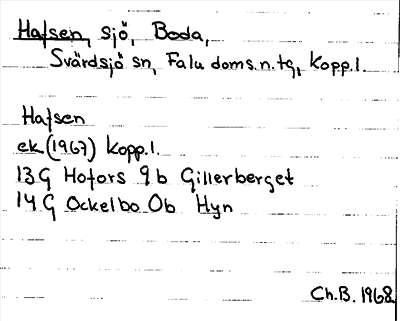 Hafsen, sjö, Boda,
Svärdsjö sn, Falu doms.n.tg, Kopp.l.
Hafsen
ek (1967) Kopp.l.
13G Hofors 9b Gillerberget
14G Ockelbo 0b Hyn
Ch.B. 1968